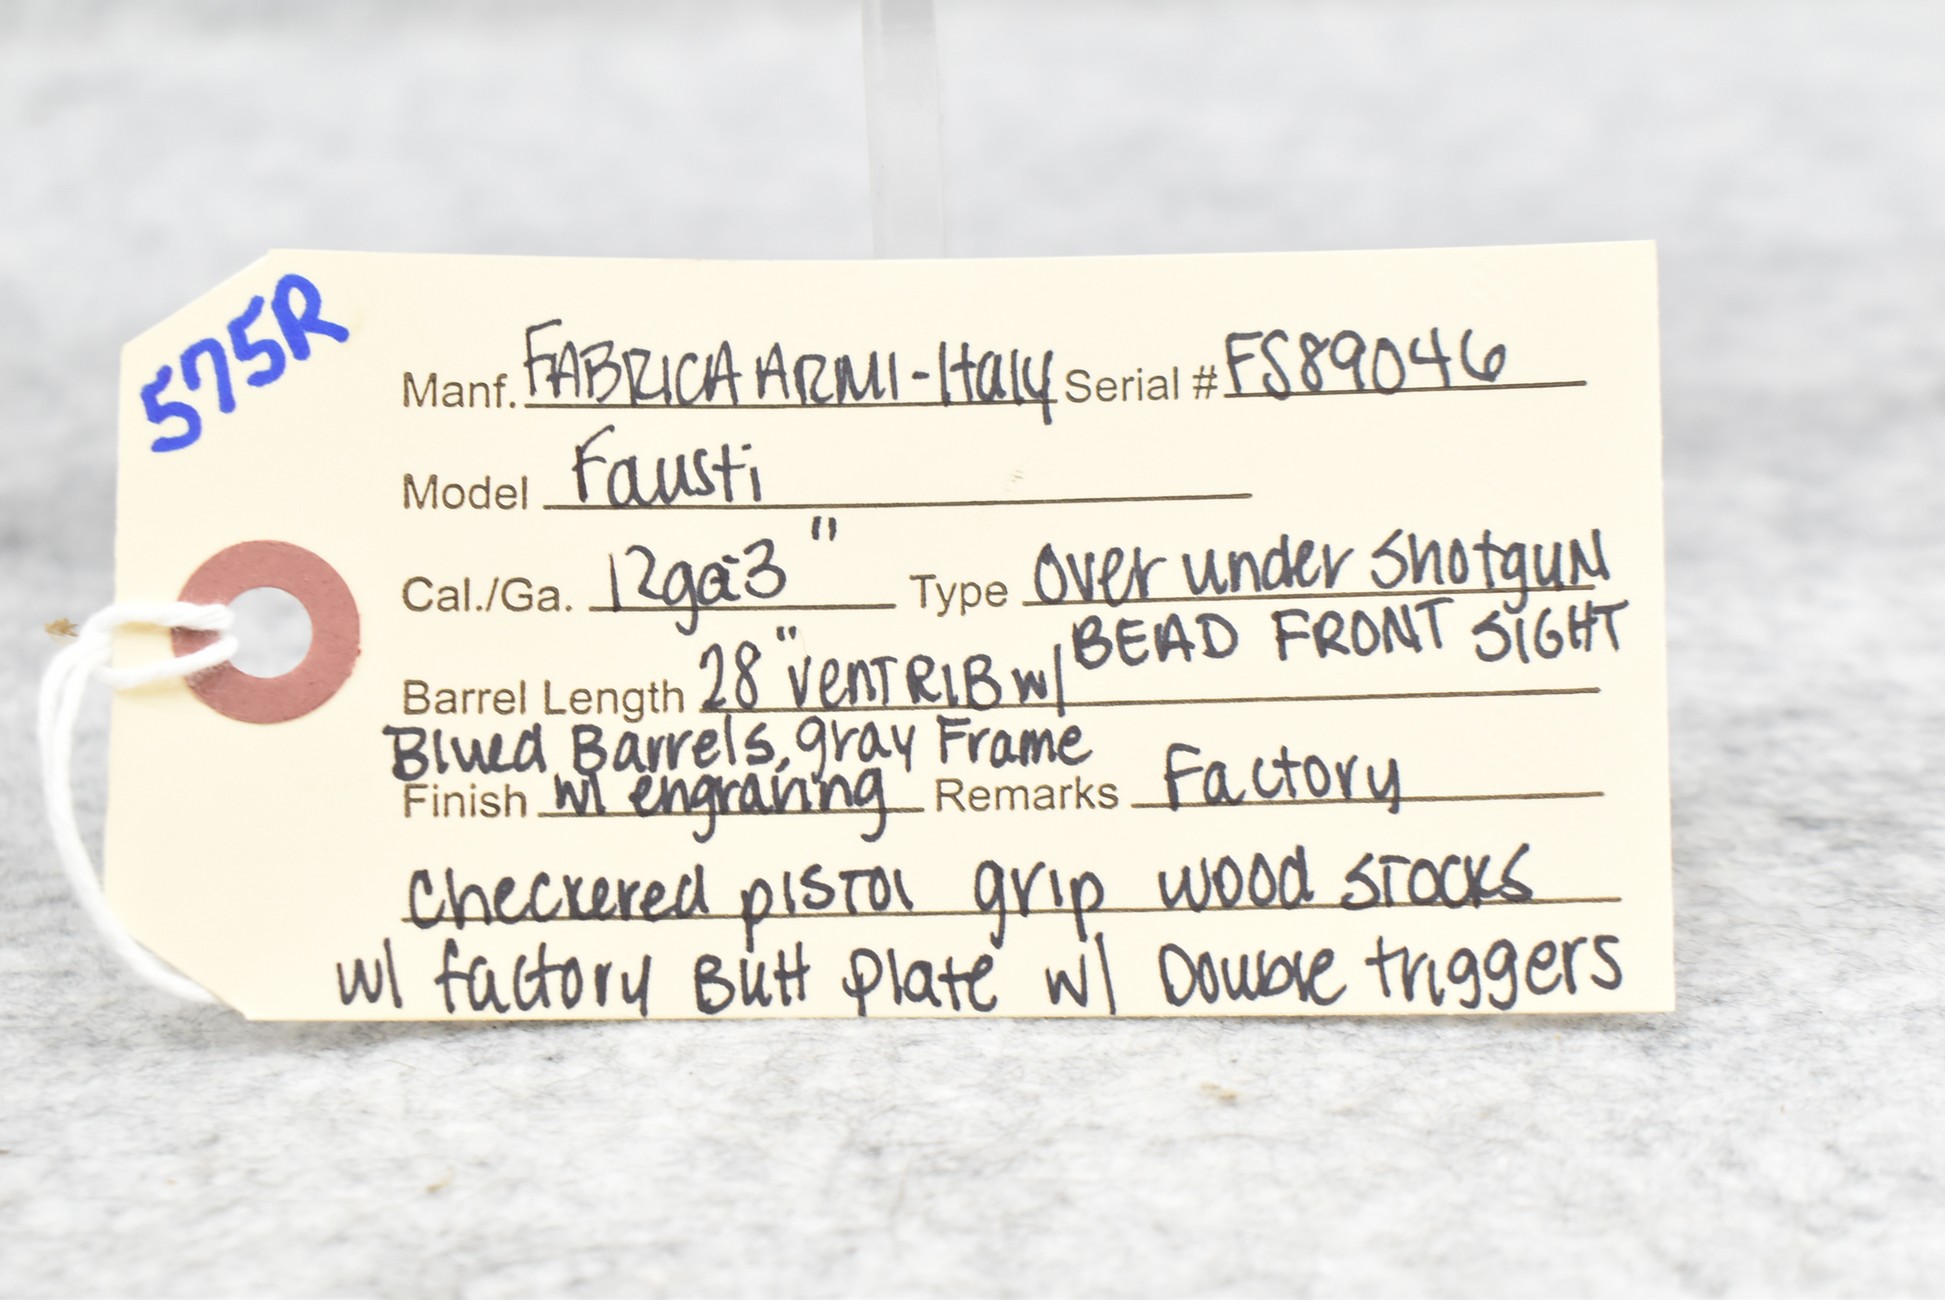 575R
Manf. FABRICA ARMI - Italy Serial # FS89046
Model Fausti
Cal./Ga. 12ga-3" Type Over under shotgun
BEAD FRONT SIGHT
Barrel Length 28" VENT RIB w/
Blued Barrels, gray Frame
Finish w/ engraving Remarks Factory
Checkered pistol grip wood stocks
w/ factory Butt plate w/ Double triggers